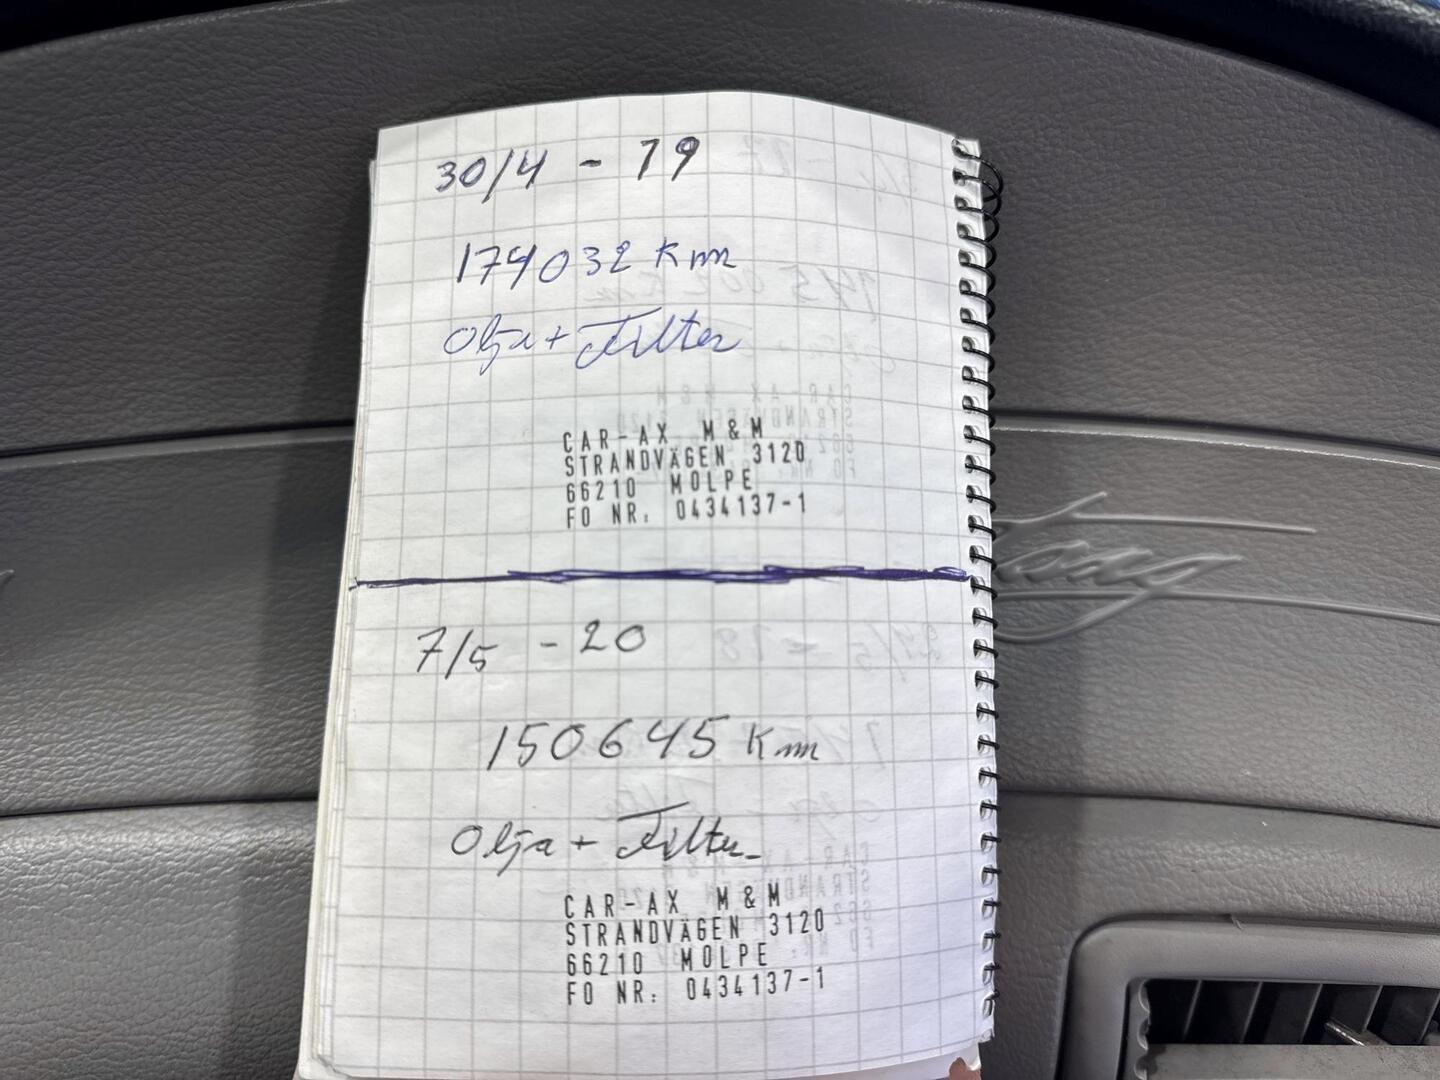 30/4 - 19
174032 km
Olja + Filter
CAR-AX M&M
STRANDVÄGEN 3120
66210 MOLPE
FO NR: 0434137-1
7/5 - 20
150645 km
Olja + Filter
CAR-AX M&M
STRANDVÄGEN 3120
66210 MOLPE
FO NR: 0434137-1